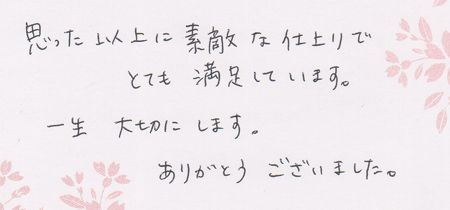 思った以上に素敵な仕上りで
とても満足しています。
一生大切にします。
ありがとうございました。